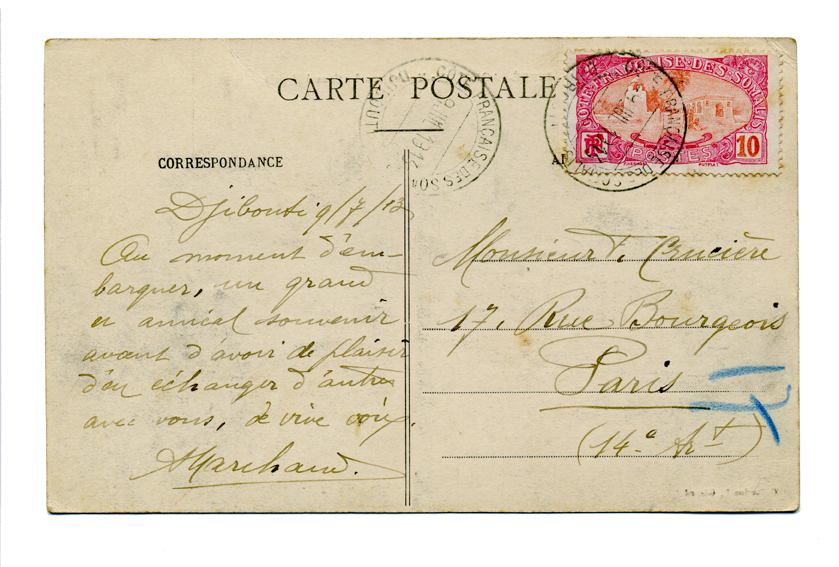 CARTE POSTALE
CÔTE FRANÇAISE DES SOMALIS
10
10
POSTES
CORRESPONDANCE
Djibouti 9/7/13
Au moment d'em-
barquer, un grand
et amical souvenir
avant d'avoir le plaisir
d'en échanger d'autres
avec vous, de vive voix.
Marchand.
Monsieur Crucière
17, Rue Bourgeois
Paris
(14e Art)